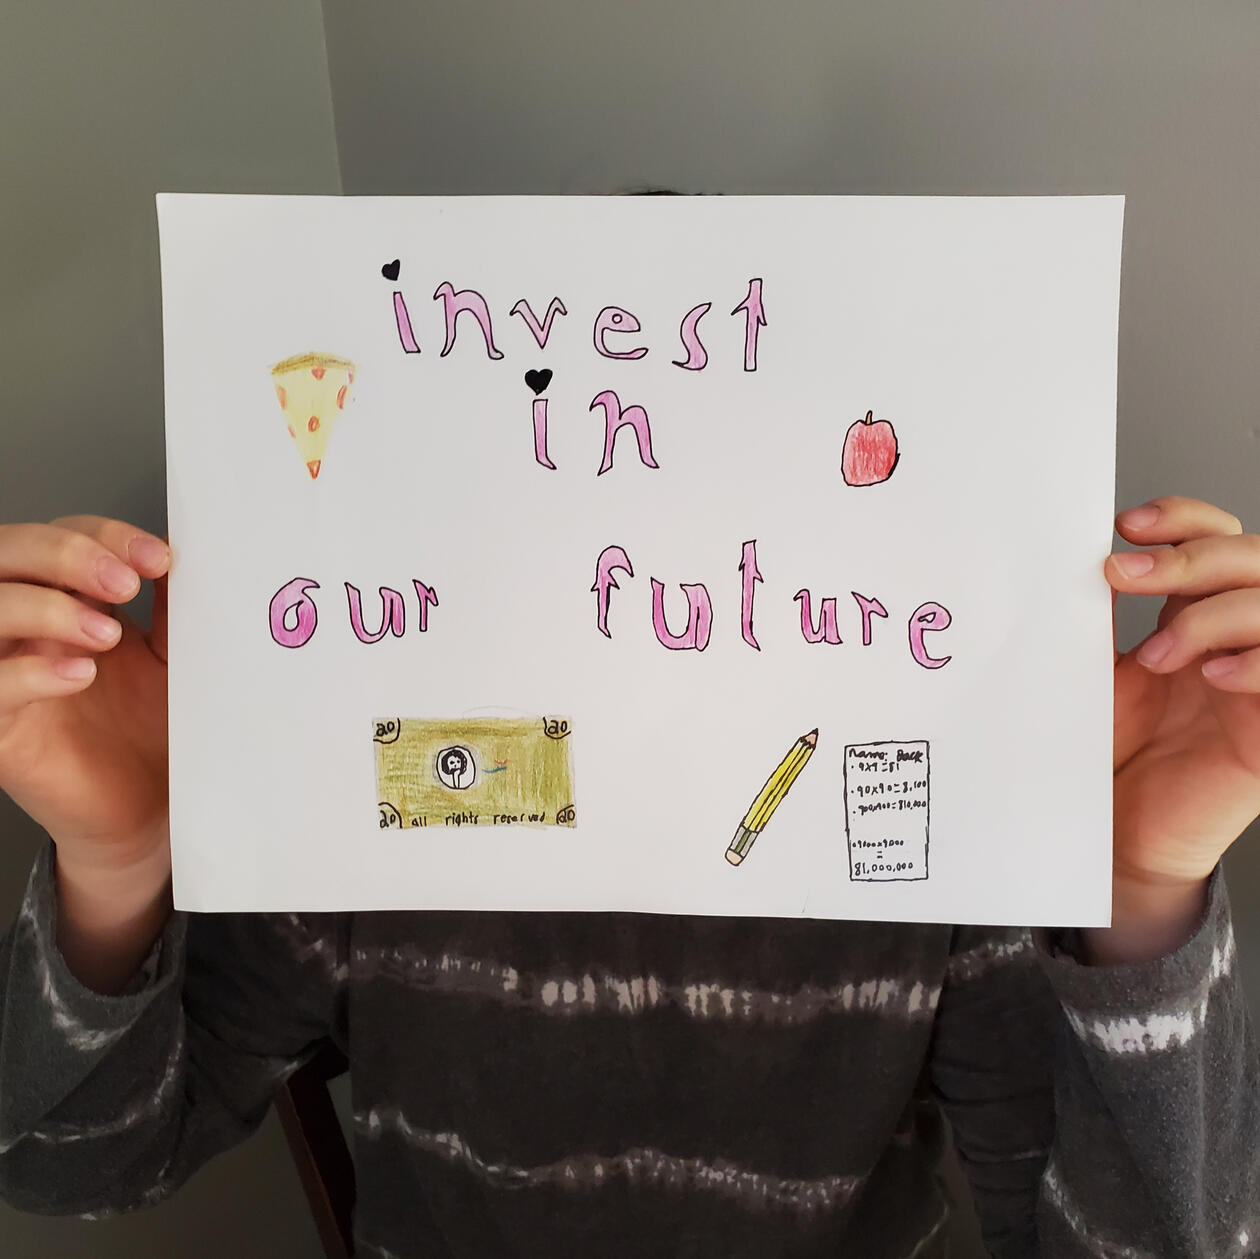 invest
in
our future
20 20
20 all rights reserved 20
name: Back
• 9x9=81
• 90x90=8,100
• 900x900=810,000
• 9000x9000
=
81,000,000